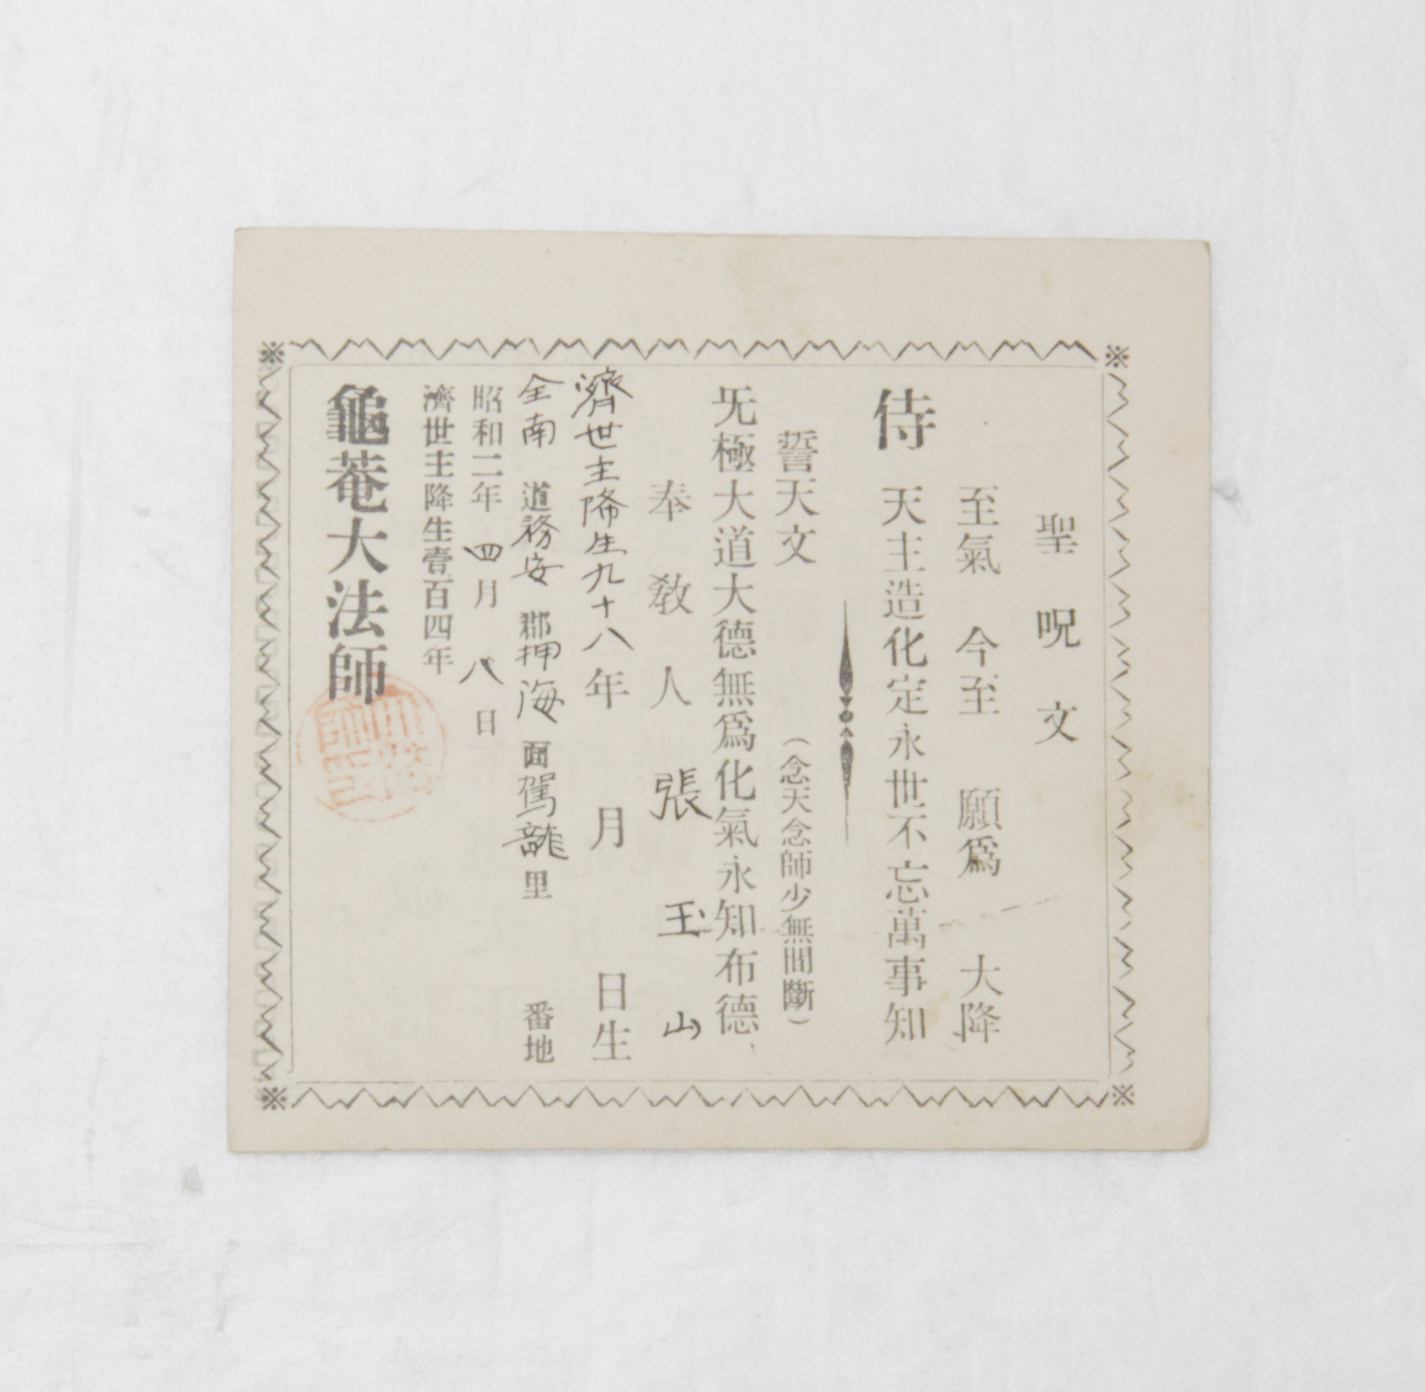 聖呪文
至氣 今至 願爲 大降
侍 天主造化定永世不忘萬事知
誓天文 (念天念師少無間斷)
旡極大道大德無爲化氣永知布德
奉教人 張玉山
濟世主降生九十八年 月 日生
全南道務安郡押海面駕龍里 番地
昭和二年四月八日
濟世主降生壹百四年
龜菴大法師